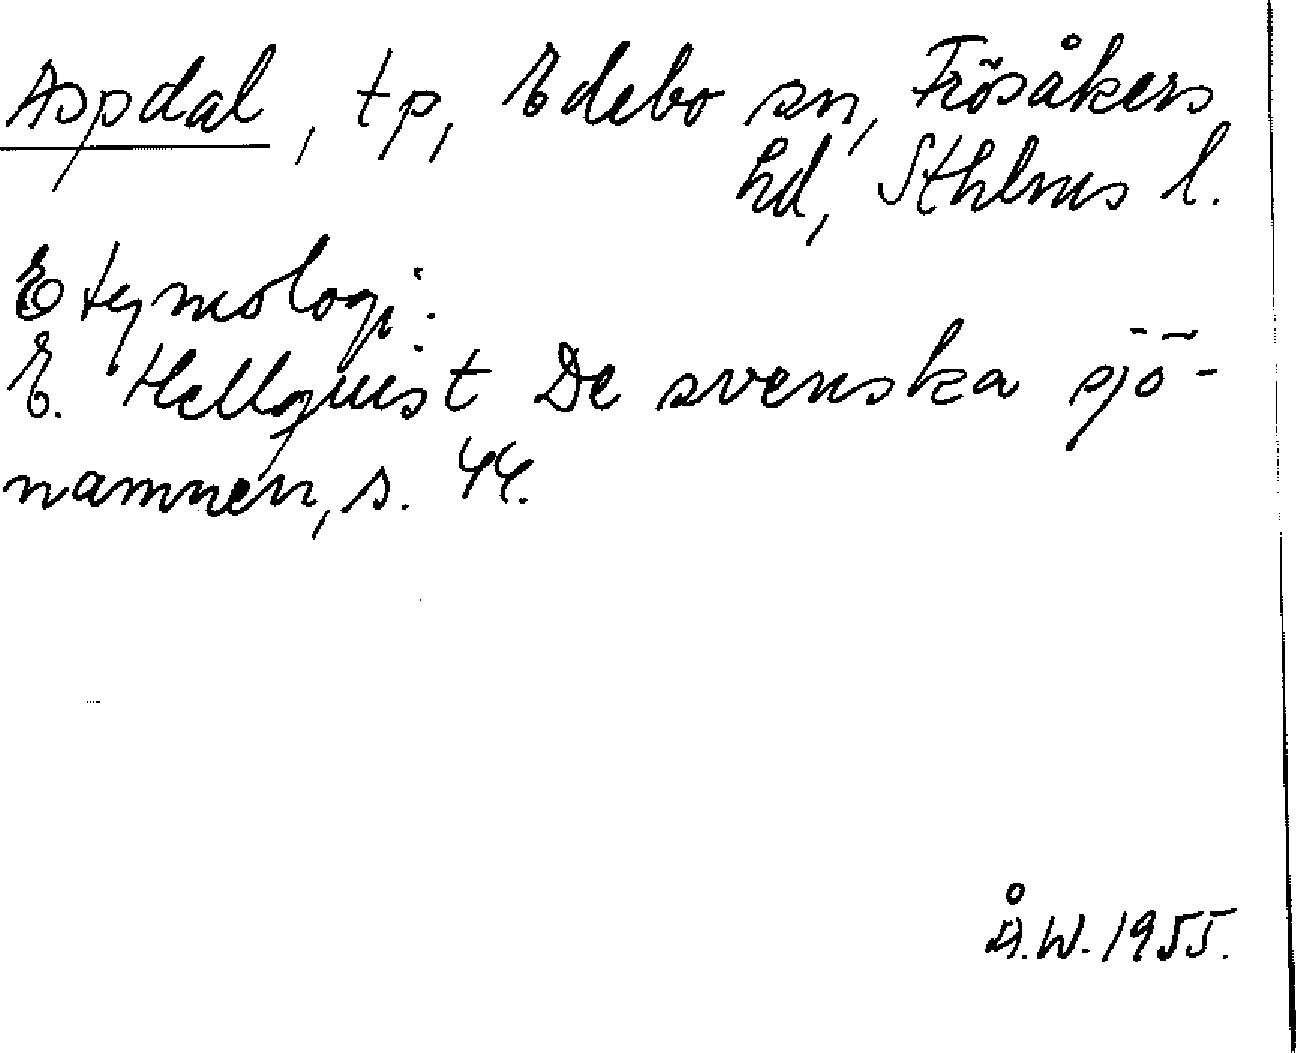 Aspdal, tp, Edebo sn, Frösåkers
hd, Sthlms l.
Etymologi:
E. Hellquist De svenska sjö-
namnen, s. 44.
Å.W. 1955.